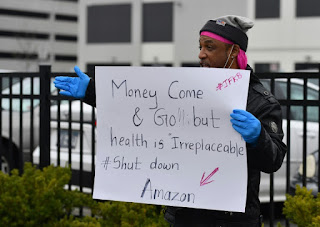 Money Come
#JFK8
& Go!!! but
health is "Irreplaceable
#Shut down
Amazon